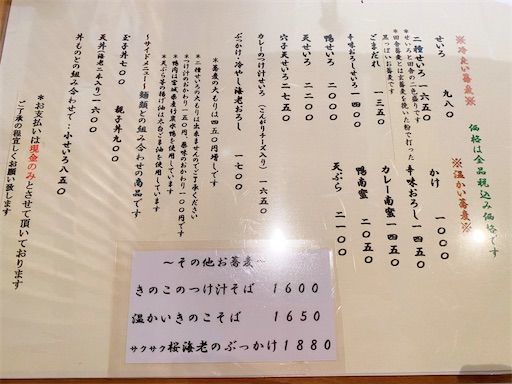 価格は全品税込み価格です
※冷たい蕎麦※
せいろ 九八〇
二種せいろ 一六五〇
＊せいろと田舎の二色盛りです
＊田舎蕎麦とは玄蕎麦を挽いた粉で打った
黒っぽいお蕎麦です
ごまだれ 一三五〇
辛味おろしせいろ 一四〇〇
鴨せいろ 二〇〇〇
天せいろ 二一〇〇
穴子天せいろ 二七五〇
カレーのつけ汁せいろ（こんがりチーズ入り） 一六五〇
ぶっかけ・冷やし海老おろし 一七〇〇
※温かい蕎麦※
かけ 九五〇
辛味おろし 一四五〇
カレー南蛮 一四五〇
鴨南蛮 二〇五〇
天ぷら 二一〇〇
＊蕎麦の大もりは四五〇円増しです
＊二種せいろの大もりは出来ませんのでご了承ください
＊つけ汁のおかわり一五〇円、薬味のおかわり一〇〇円です
＊鴨肉は宮城県産蔵王鴨を使用しています
＊天ぷら等の揚げ油は太白ごま油を使用しています
〜サイドメニュー〜麺類との組み合わせの商品です
玉子丼七〇〇 親子丼九〇〇
天丼（海老二本入り）一六〇〇
丼ものとの組み合わせで・・小せいろ八五〇
＊お支払いは現金のみとさせて頂いております
ご了承の程宜しくお願い致します
〜その他お蕎麦〜
きのこのつけ汁そば 1600
温かいきのこそば 1650
サクサク桜海老のぶっかけ 1880